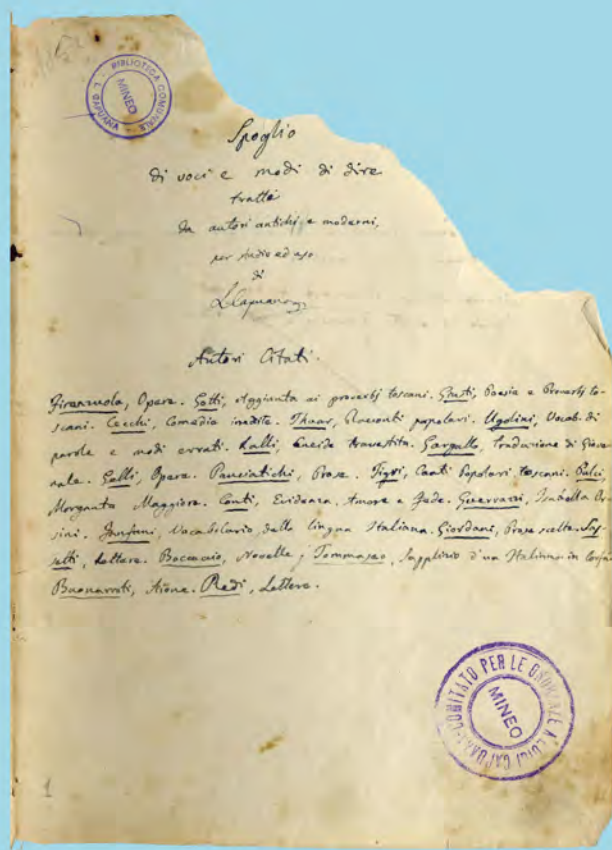 BIBLIOTECA COMUNALE
L. CAPUANA
MINEO
Spoglio
di voci e modi di dire
tratte
da autori antichi e moderni,
per studio ed uso
di
LCapuana
Autori Citati.
Firenzuola, Opere. Gotti, Aggiunta ai proverbj toscani. Giusti, Poesie e Proverbj to-
scani. Cecchi, Comedie inedite. Thouar, Racconti popolari. Ugolini, Vocab. di
parole e modi errati. Lalli, Eneide travestita. Gargallo, Traduzione di Giove-
nale. Gelli, Opere. Panciatichi, Prose. Tigri, Canti Popolari toscani. Pulci,
Morgante Maggiore. Conti, Evidenza, Amore e Fede. Guerrazzi, Isabella Or-
sini. Fanfani, Vocabolario della lingua Italiana. Giordani, Prose scelte. Sas-
setti, Lettere. Boccaccio, Novelle; Tommaseo, Supplizio d'un Italiano in Corfù
Buonarroti, Redi, Lettere.
COMITATO PER LE ONORANZE A LUIGI CAPUANA
MINEO
1